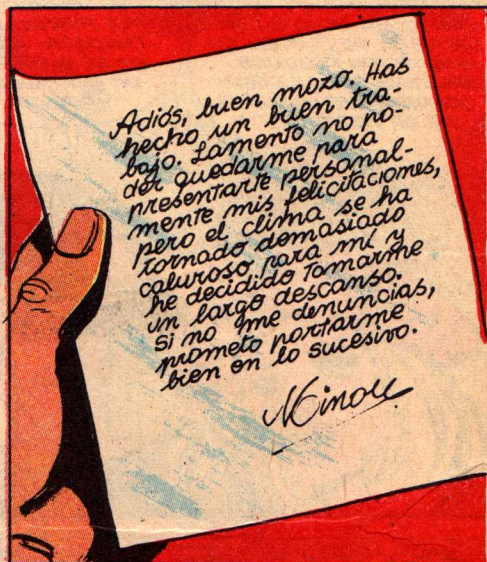 Adiós, buen mozo. Has
hecho un buen tra-
bajo. Lamento no po-
der quedarme para
presentarte personal-
mente mis felicitaciones,
pero el clima se ha
tornado demasiado
caluroso para mí y
he decidido tomarme
un largo descanso.
si no me denuncias,
prometo portarme
bien en lo sucesivo.
Minou